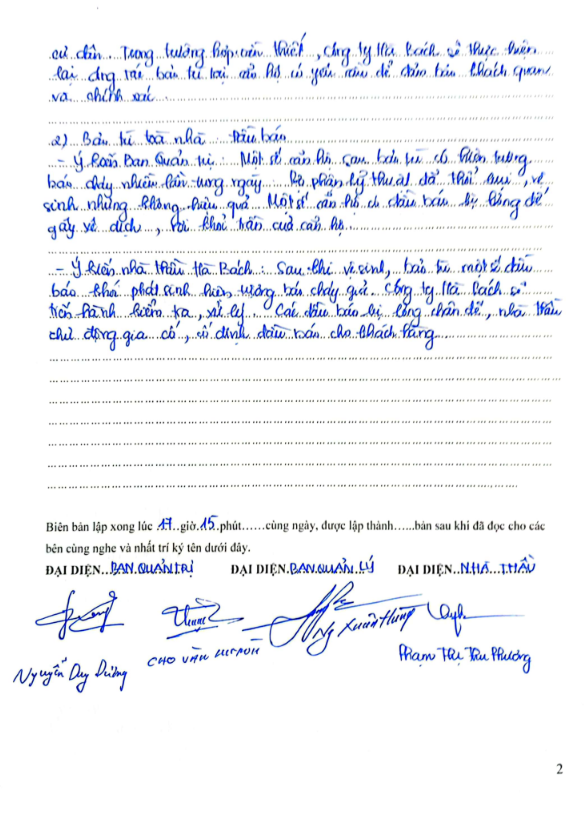 cư dân. Trong trường hợp cần thiết, Công ty Hà Bách sẽ thực hiện
lại công tác bảo trì tại căn hộ có yêu cầu để đảm bảo khách quan
và chính xác
2) Bảo trì toà nhà : Đầu báo
- Ý kiến Ban Quản trị : Một số căn hộ sau bảo trì có hiện tượng
báo cháy nhiều lần trong ngày. Bộ phận kỹ thuật đã thổi bụi, vệ
sinh nhưng không hiệu quả. Một số căn hộ có đầu báo bị lỏng đế
gãy vỡ , rơi khỏi trần của căn hộ
- Ý kiến nhà thầu Hà Bách : Sau khi vệ sinh, bảo trì một số đầu
báo khói phát sinh hiện tượng báo cháy giả. Công ty Hà Bách sẽ
tiến hành kiểm tra, xử lý. Các đầu báo bị lỏng chân đế, nhà thầu
chủ động gia cố, cố định đầu báo cho khách hàng
Biên bản lập xong lúc 17 giờ 15 phút......cùng ngày, được lập thành......bản sau khi đã đọc cho các
bên cùng nghe và nhất trí ký tên dưới đây.
ĐẠI DIỆN BAN QUẢN TRỊ ĐẠI DIỆN BAN QUẢN LÝ ĐẠI DIỆN NHÀ THẦU
Ng Xuân Hùng
CHO VĂN
Phạm Thị Thu Phương
Nguyễn Duy Dương
2